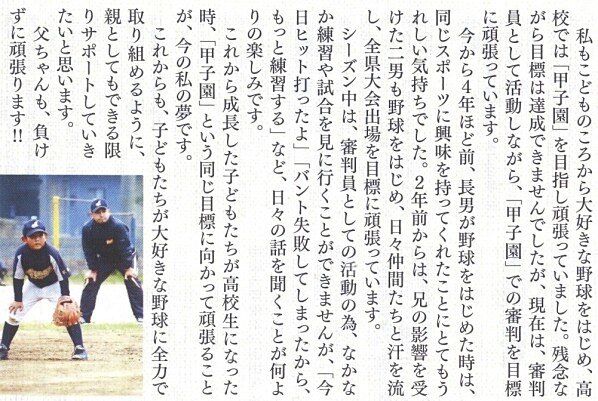 私もこどものころから大好きな野球をはじめ、高
校では「甲子園」を目指し頑張っていました。残念な
がら目標は達成できませんでしたが、現在は、審判
員として活動しながら、「甲子園」での審判を目標
に頑張っています。
　今から４年ほど前、長男が野球をはじめた時は、
同じスポーツに興味を持ってくれたことにとてもう
れしい気持ちでした。２年前からは、兄の影響を受
けた二男も野球をはじめ、日々仲間たちと汗を流
し、全県大会出場を目標に頑張っています。
　シーズン中は、審判員としての活動の為、なかな
か練習や試合を見に行くことができませんが、「今
日ヒット打ったよ」「バント失敗してしまったから、
もっと練習する」など、日々の話を聞くことが何よ
りの楽しみです。
　これから成長した子どもたちが高校生になった
時、「甲子園」という同じ目標に向かって頑張ること
が、今の私の夢です。
　これからも、子どもたちが大好きな野球に全力で
取り組めるように、
親としてもできる限
りサポートしていき
たいと思います。
　父ちゃんも、負け
ずに頑張ります!!